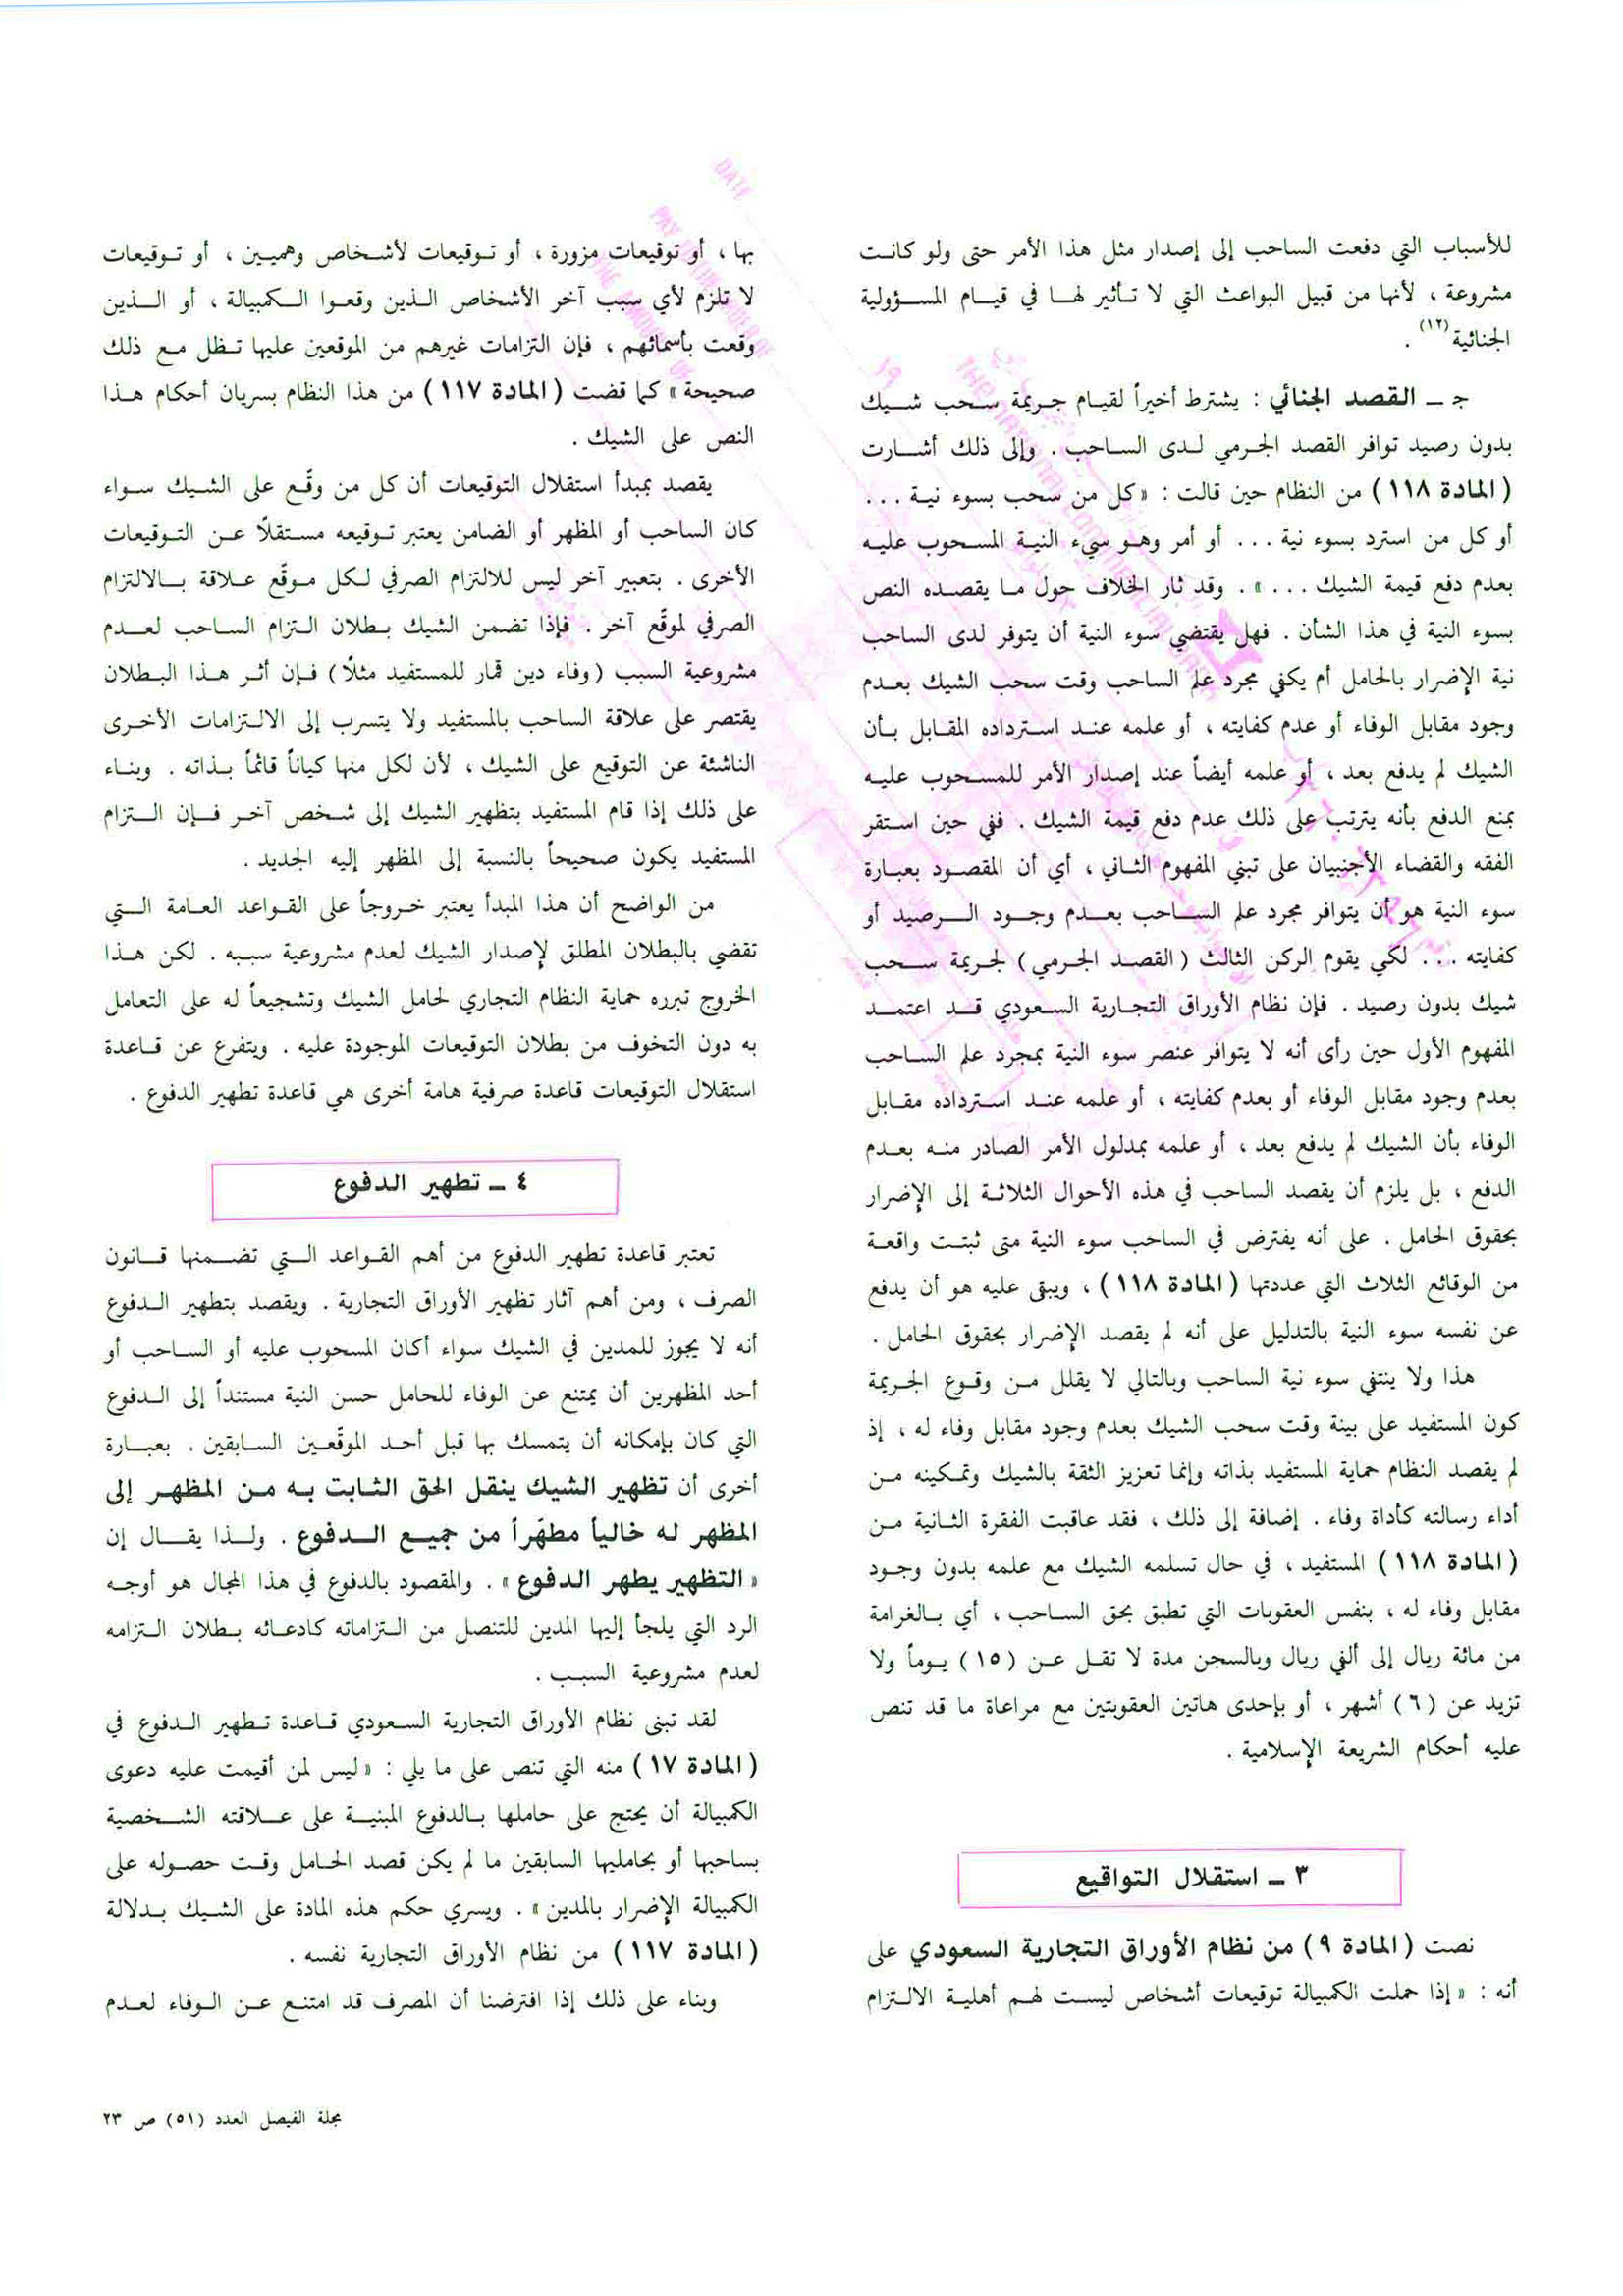 للأسباب التي دفعت الساحب إلى إصدار مثل هذا الأمر حتى ولو كانت
مشروعة ، لأنها من قبيل البواعث التي لا تأثير لها في قيام المسؤولية
الجنائية(١٢) .
جـ ـ القصد الجنائي : يشترط أخيراً لقيام جريمة سحب شيك
بدون رصيد توافر القصد الجرمي لدى الساحب . وإلى ذلك أشارت
(المادة ١١٨) من النظام حين قالت : «كل من سحب بسوء نية ...
أو كل من استرد بسوء نية ... أو أمر وهو سيء النية المسحوب عليه
بعدم دفع قيمة الشيك ...» . وقد ثار الخلاف حول ما يقصده النص
بسوء النية في هذا الشأن . فهل يقتضي سوء النية أن يتوفر لدى الساحب
نية الإضرار بالحامل أم يكفي مجرد علم الساحب وقت سحب الشيك بعدم
وجود مقابل الوفاء أو عدم كفايته ، أو علمه عند استرداده المقابل بأن
الشيك لم يدفع بعد ، أو علمه أيضاً عند إصدار الأمر للمسحوب عليه
بمنع الدفع بأنه يترتب على ذلك عدم دفع قيمة الشيك . ففي حين استقر
الفقه والقضاء الأجنبيان على تبني المفهوم الثاني ، أي أن المقصود بعبارة
سوء النية هو أن يتوافر مجرد علم الساحب بعدم وجود الرصيد أو
كفايته ... لكي يقوم الركن الثالث (القصد الجرمي) لجريمة سحب
شيك بدون رصيد . فإن نظام الأوراق التجارية السعودي قد اعتمد
المفهوم الأول حين رأى أنه لا يتوافر عنصر سوء النية بمجرد علم الساحب
بعدم وجود مقابل الوفاء أو بعدم كفايته ، أو علمه عند استرداده مقابل
الوفاء بأن الشيك لم يدفع بعد ، أو علمه بمدلول الأمر الصادر منه بعدم
الدفع ، بل يلزم أن يقصد الساحب في هذه الأحوال الثلاثة إلى الإضرار
بحقوق الحامل . على أنه يفترض في الساحب سوء النية متى ثبتت واقعة
من الوقائع الثلاث التي عددتها (المادة ١١٨) ، ويبقى عليه هو أن يدفع
عن نفسه سوء النية بالتدليل على أنه لم يقصد الإضرار بحقوق الحامل .
هذا ولا ينتفي سوء نية الساحب وبالتالي لا يقلل من وقوع الجريمة
كون المستفيد على بينة وقت سحب الشيك بعدم وجود مقابل وفاء له ، إذ
لم يقصد النظام حماية المستفيد بذاته وإنما تعزيز الثقة بالشيك وتمكينه من
أداء رسالته كأداة وفاء . إضافة إلى ذلك ، فقد عاقبت الفقرة الثانية من
(المادة ١١٨) المستفيد ، في حال تسلمه الشيك مع علمه بدون وجود
مقابل وفاء له ، بنفس العقوبات التي تطبق بحق الساحب ، أي بالغرامة
من مائة ريال إلى ألفي ريال وبالسجن مدة لا تقل عن (١٥) يوماً ولا
تزيد عن (٦) أشهر ، أو بإحدى هاتين العقوبتين مع مراعاة ما قد تنص
عليه أحكام الشريعة الإسلامية .
٣ ـ استقلال التواقيع
نصت (المادة ٩) من نظام الأوراق التجارية السعودي على
أنه : «إذا حملت الكمبيالة توقيعات أشخاص ليست لهم أهلية الالتزام
بها ، أو توقيعات مزورة ، أو توقيعات لأشخاص وهميين ، أو توقيعات
لا تلزم لأي سبب آخر الأشخاص الذين وقعوا الكمبيالة ، أو الذين
وقعت بأسمائهم ، فإن التزامات غيرهم من الموقعين عليها تظل مع ذلك
صحيحة» كما قضت (المادة ١١٧) من هذا النظام بسريان أحكام هذا
النص على الشيك .
يقصد بمبدأ استقلال التوقيعات أن كل من وقّع على الشيك سواء
كان الساحب أو المظهر أو الضامن يعتبر توقيعه مستقلاً عن التوقيعات
الأخرى . بتعبير آخر ليس للالتزام الصرفي لكل موقّع علاقة بالالتزام
الصرفي لموقّع آخر . فإذا تضمن الشيك بطلان التزام الساحب لعدم
مشروعية السبب (وفاء دين قمار للمستفيد مثلاً) فإن أثر هذا البطلان
يقتصر على علاقة الساحب بالمستفيد ولا يتسرب إلى الالتزامات الأخرى
الناشئة عن التوقيع على الشيك ، لأن لكل منها كياناً قائماً بذاته . وبناء
على ذلك إذا قام المستفيد بتظهير الشيك إلى شخص آخر فإن التزام
المستفيد يكون صحيحاً بالنسبة إلى المظهر إليه الجديد .
من الواضح أن هذا المبدأ يعتبر خروجاً على القواعد العامة التي
تقضي بالبطلان المطلق لإصدار الشيك لعدم مشروعية سببه . لكن هذا
الخروج تبرره حماية النظام التجاري لحامل الشيك وتشجيعاً له على التعامل
به دون التخوف من بطلان التوقيعات الموجودة عليه . ويتفرع عن قاعدة
استقلال التوقيعات قاعدة صرفية هامة أخرى هي قاعدة تطهير الدفوع .
٤ ـ تطهير الدفوع
تعتبر قاعدة تطهير الدفوع من أهم القواعد التي تضمنها قانون
الصرف ، ومن أهم آثار تظهير الأوراق التجارية . ويقصد بتطهير الدفوع
أنه لا يجوز للمدين في الشيك سواء أكان المسحوب عليه أو الساحب أو
أحد المظهرين أن يمتنع عن الوفاء للحامل حسن النية مستنداً إلى الدفوع
التي كان بإمكانه أن يتمسك بها قبل أحد الموقّعين السابقين . بعبارة
أخرى أن تظهير الشيك ينقل الحق الثابت به من المظهر إلى
المظهر له خالياً مطهّراً من جميع الدفوع . ولذا يقال إن
«التظهير يطهر الدفوع» . والمقصود بالدفوع في هذا المجال هو أوجه
الرد التي يلجأ إليها المدين للتنصل من التزاماته كادعائه بطلان التزامه
لعدم مشروعية السبب .
لقد تبنى نظام الأوراق التجارية السعودي قاعدة تطهير الدفوع في
(المادة ١٧) منه التي تنص على ما يلي : «ليس لمن أقيمت عليه دعوى
الكمبيالة أن يحتج على حاملها بالدفوع المبنية على علاقته الشخصية
بساحبها أو بحامليها السابقين ما لم يكن قصد الحامل وقت حصوله على
الكمبيالة الإضرار بالمدين» . ويسري حكم هذه المادة على الشيك بدلالة
(المادة ١١٧) من نظام الأوراق التجارية نفسه .
وبناء على ذلك إذا افترضنا أن المصرف قد امتنع عن الوفاء لعدم
مجلة الفيصل العدد (٥١) ص ٢٣